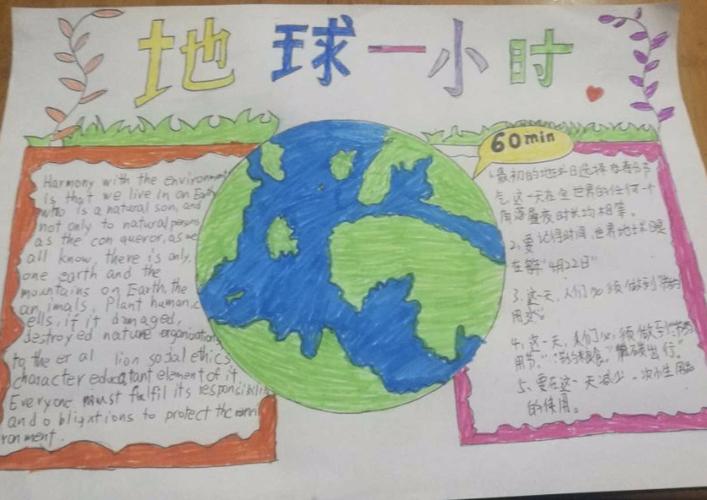 地球一小时
60min
Harmony with the environment
is that we live in an Earth
who is a natural son, and
not only to natural persons
as the conqueror, as we
all know, there is only
one earth and the
mountains on Earth, the
animals, Plant human, c
ells, if it damaged,
destroyed nature organization
to the er al lion social ethics
character educatant element of it
Everyone must fulfil its responsibilit
and obligations to protect the
ronment.
最初的地球日选择在春分节
气,这一天在全世界的任何一个
角落昼夜时长均相等。
2、要记得时间,世界地球日是
在每年"4月22日"
3、这一天,人们必须做到
用水"
4、这一天,人们必须做到
用节""出行"。
5、要在这一天减少一次性用品
的使用。